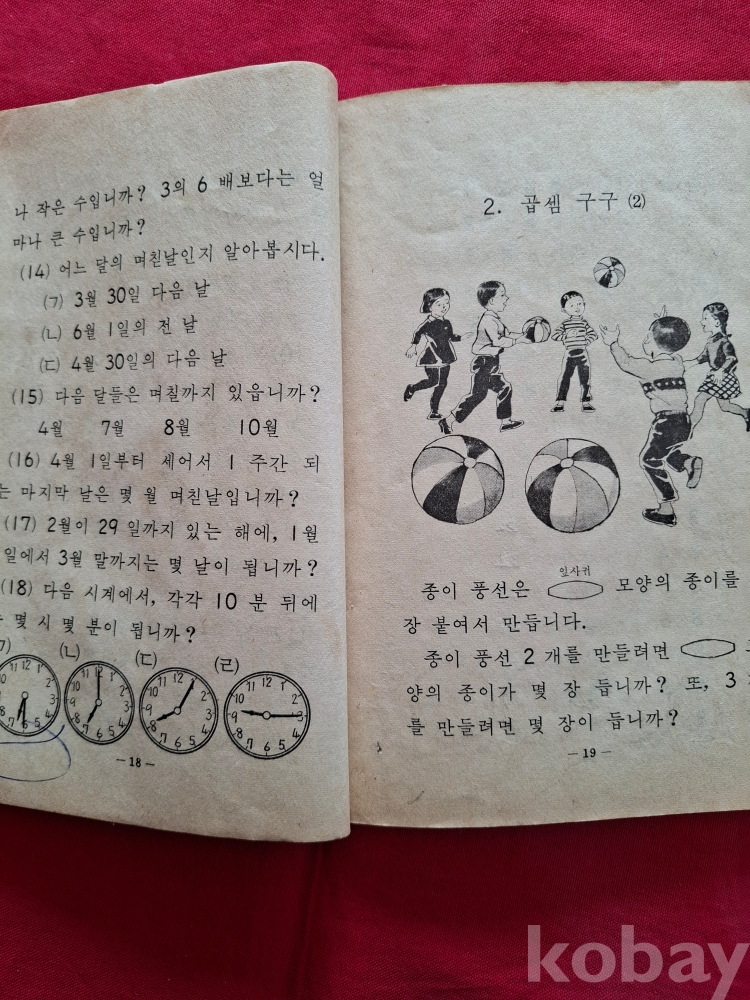 나 작은 수입니까? 3의 6 배보다는 얼
마나 큰 수입니까?
(14) 어느 달의 며친날인지 알아봅시다.
(ㄱ) 3월 30일 다음 날
(ㄴ) 6월 1일의 전 날
(ㄷ) 4월 30일의 다음 날
(15) 다음 달들은 며칠까지 있읍니까?
4월 7월 8월 10월
(16) 4월 1일부터 세어서 1 주간 되
는 마지막 날은 몇 월 며친날입니까?
(17) 2월이 29 일까지 있는 해에, 1월
일에서 3월 말까지는 몇 날이 됩니까?
(18) 다음 시계에서, 각각 10 분 뒤에
몇 시 몇 분이 됩니까?
(ㄴ) (ㄷ) (ㄹ)
11 12 1 2 3 4 5 6 7 8
11 12 1 2 3 4 5 6 7 8 9 10
11 12 1 2 3 4 5 6 7 8 9 10
11 12 1 2 3 4 5 6 7 8 9 10
— 18 —
2. 곱셈 구구 (2)
잎사귀
종이 풍선은 모양의 종이를
장 붙여서 만듭니다.
종이 풍선 2 개를 만들려면
양의 종이가 몇 장 듭니까? 또, 3
를 만들려면 몇 장이 듭니까?
— 19 —
kobay